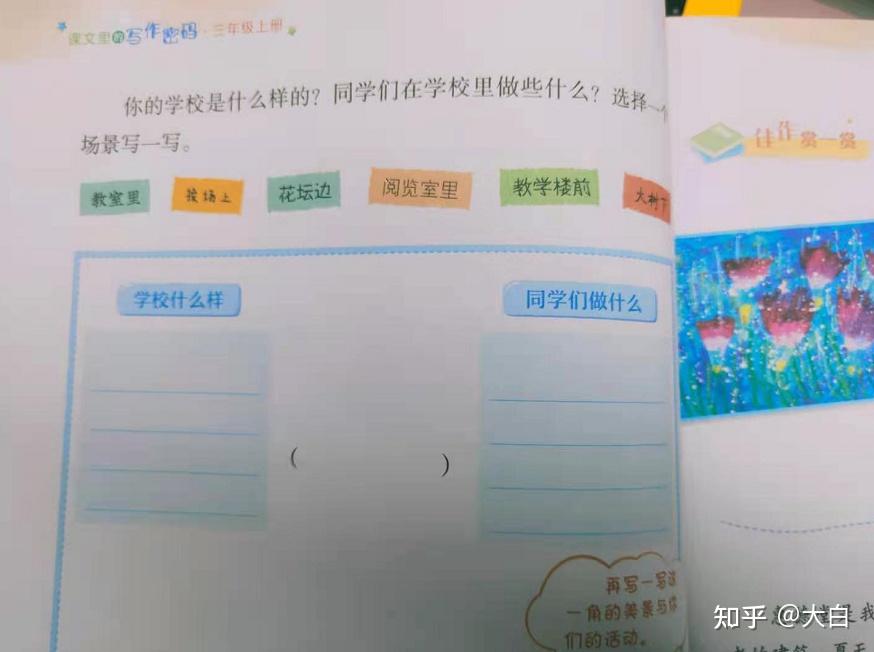 课文里的写作密码·三年级上册
你的学校是什么样的？同学们在学校里做些什么？选择一个
场景写一写。
教室里 操场上 花坛边 阅览室里 教学楼前 大树下
佳作赏一赏
学校什么样
同学们做什么
（ ）
再写一写这
一角的美景与你
们的活动。
知乎 @大白